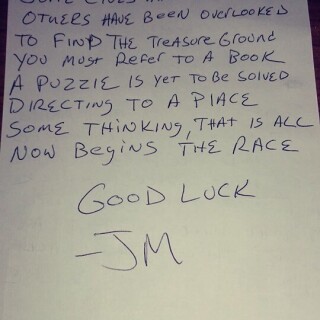 OTHERS HAVE BEEN OVERLOOKED
TO FIND THE TREASURE GROUND
YOU MUST REFER TO A BOOK
A PUZZLE IS YET TO BE SOLVED
DIRECTING TO A PLACE
SOME THINKING, THAT IS ALL
NOW BEGINS THE RACE
GOOD LUCK
-JM